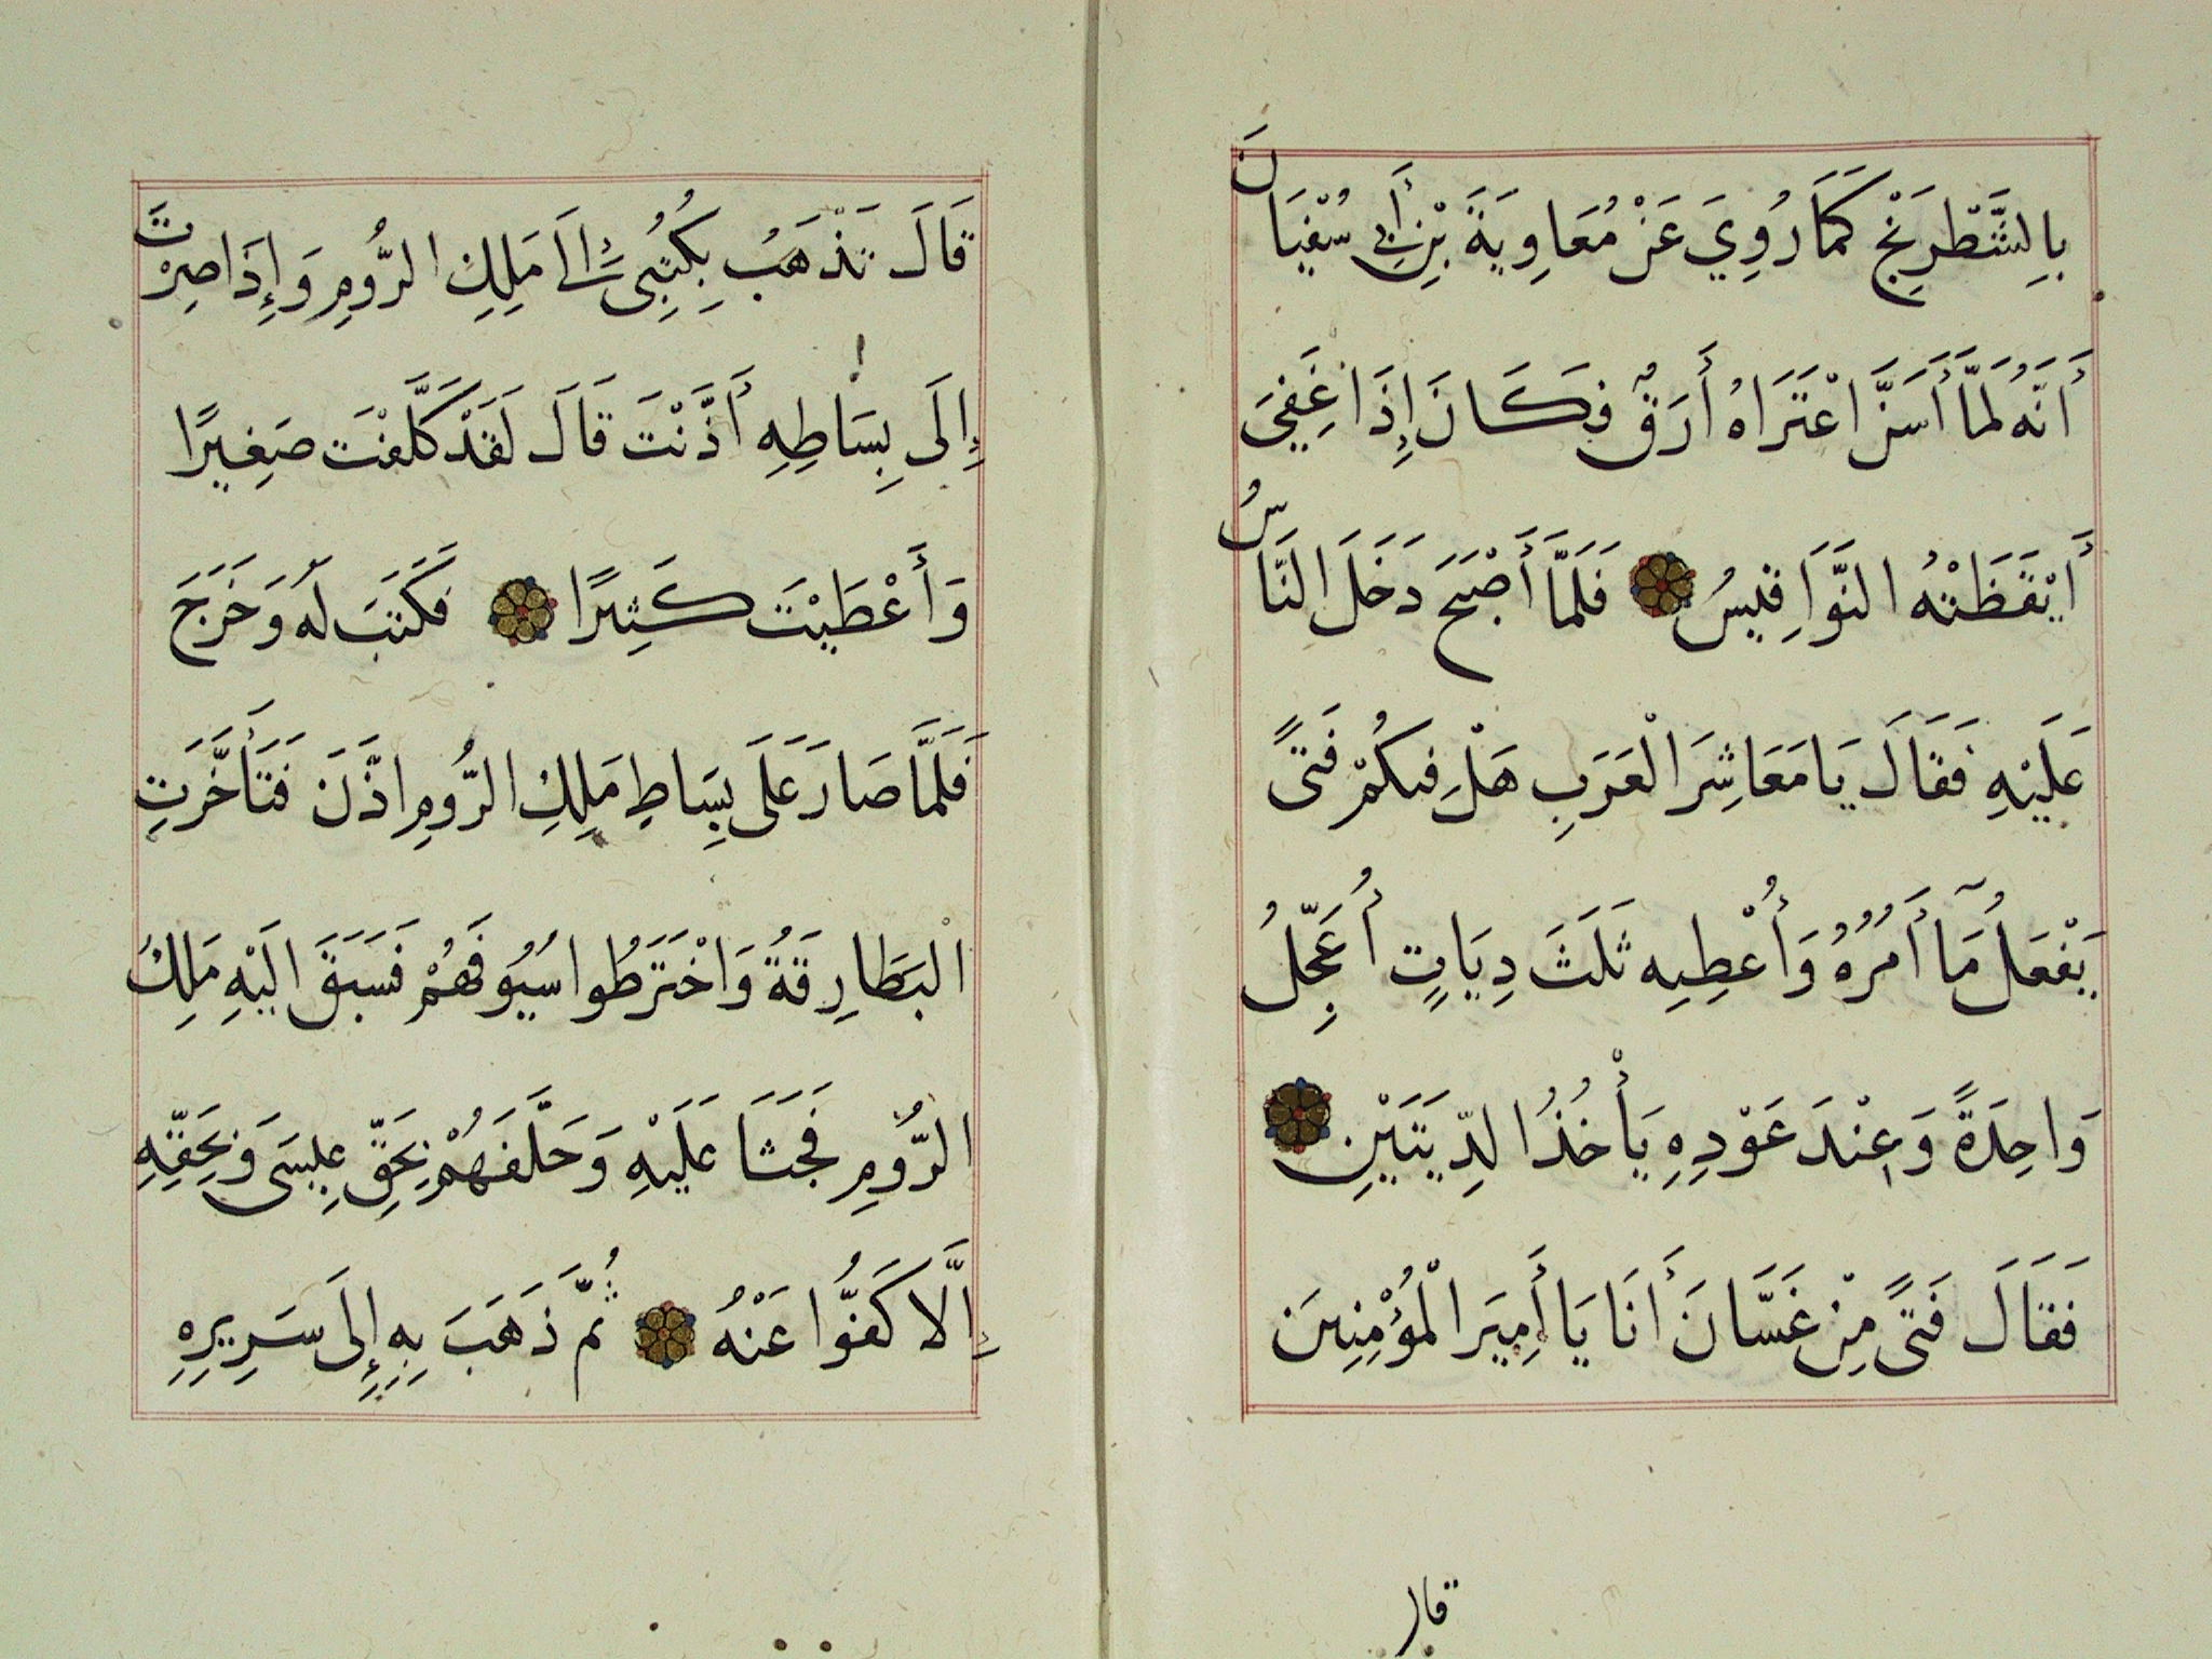 بِالشَّطْرَنْجِ كَمَا رُوِيَ عَنْ مُعَاوِيَةَ بْنِ أَبِي سُفْيَانَ
أَنَّهُ لَمَّا أَسَنَّ اعْتَرَاهُ أَرَقٌ فَكَانَ إِذَا غَفِيَ
أَيْقَظَتْهُ النَّوَاقِيسُ فَلَمَّا أَصْبَحَ دَخَلَ النَّاسُ
عَلَيْهِ فَقَالَ يَا مَعَاشِرَ الْعَرَبِ هَلْ فِيكُمْ فَتًى
يَفْعَلُ مَا آمُرُهُ وَأُعْطِيهِ ثَلَثَ دِيَاتٍ أُعَجِّلُ
وَاحِدَةً وَعِنْدَ عَوْدِهِ يَأْخُذُ الدِّيَتَيْنِ
فَقَالَ فَتًى مِنْ غَسَّانَ أَنَا يَا أَمِيرَ الْمُؤْمِنِينَ
قال
قَالَ تَذْهَبُ بِكُتُبِي إِلَى مَلِكِ الرُّومِ وَإِذَا صِرْتَ
إِلَى بِسَاطِهِ أَذَّنْتَ قَالَ لَقَدْ كَلَّفْتَ صَغِيرًا
وَأَعْطَيْتَ كَثِيرًا فَكَتَبَ لَهُ وَخَرَجَ
فَلَمَّا صَارَ عَلَى بِسَاطِ مَلِكِ الرُّومِ اذَّنَ فَتَأَخَّرَتِ
الْبَطَارِقَةُ وَاخْتَرَطُوا سُيُوفَهُمْ فَسَبَقَ الَيْهِ مَلِكُ
الرُّومِ فَجَثَا عَلَيْهِ وَحَلَّفَهُمْ بِحَقِّ عِيسَى وَبِحَقِّهِ
إِلَّا كَفُّوا عَنْهُ ثُمَّ ذَهَبَ بِهِ إِلَى سَرِيرِهِ